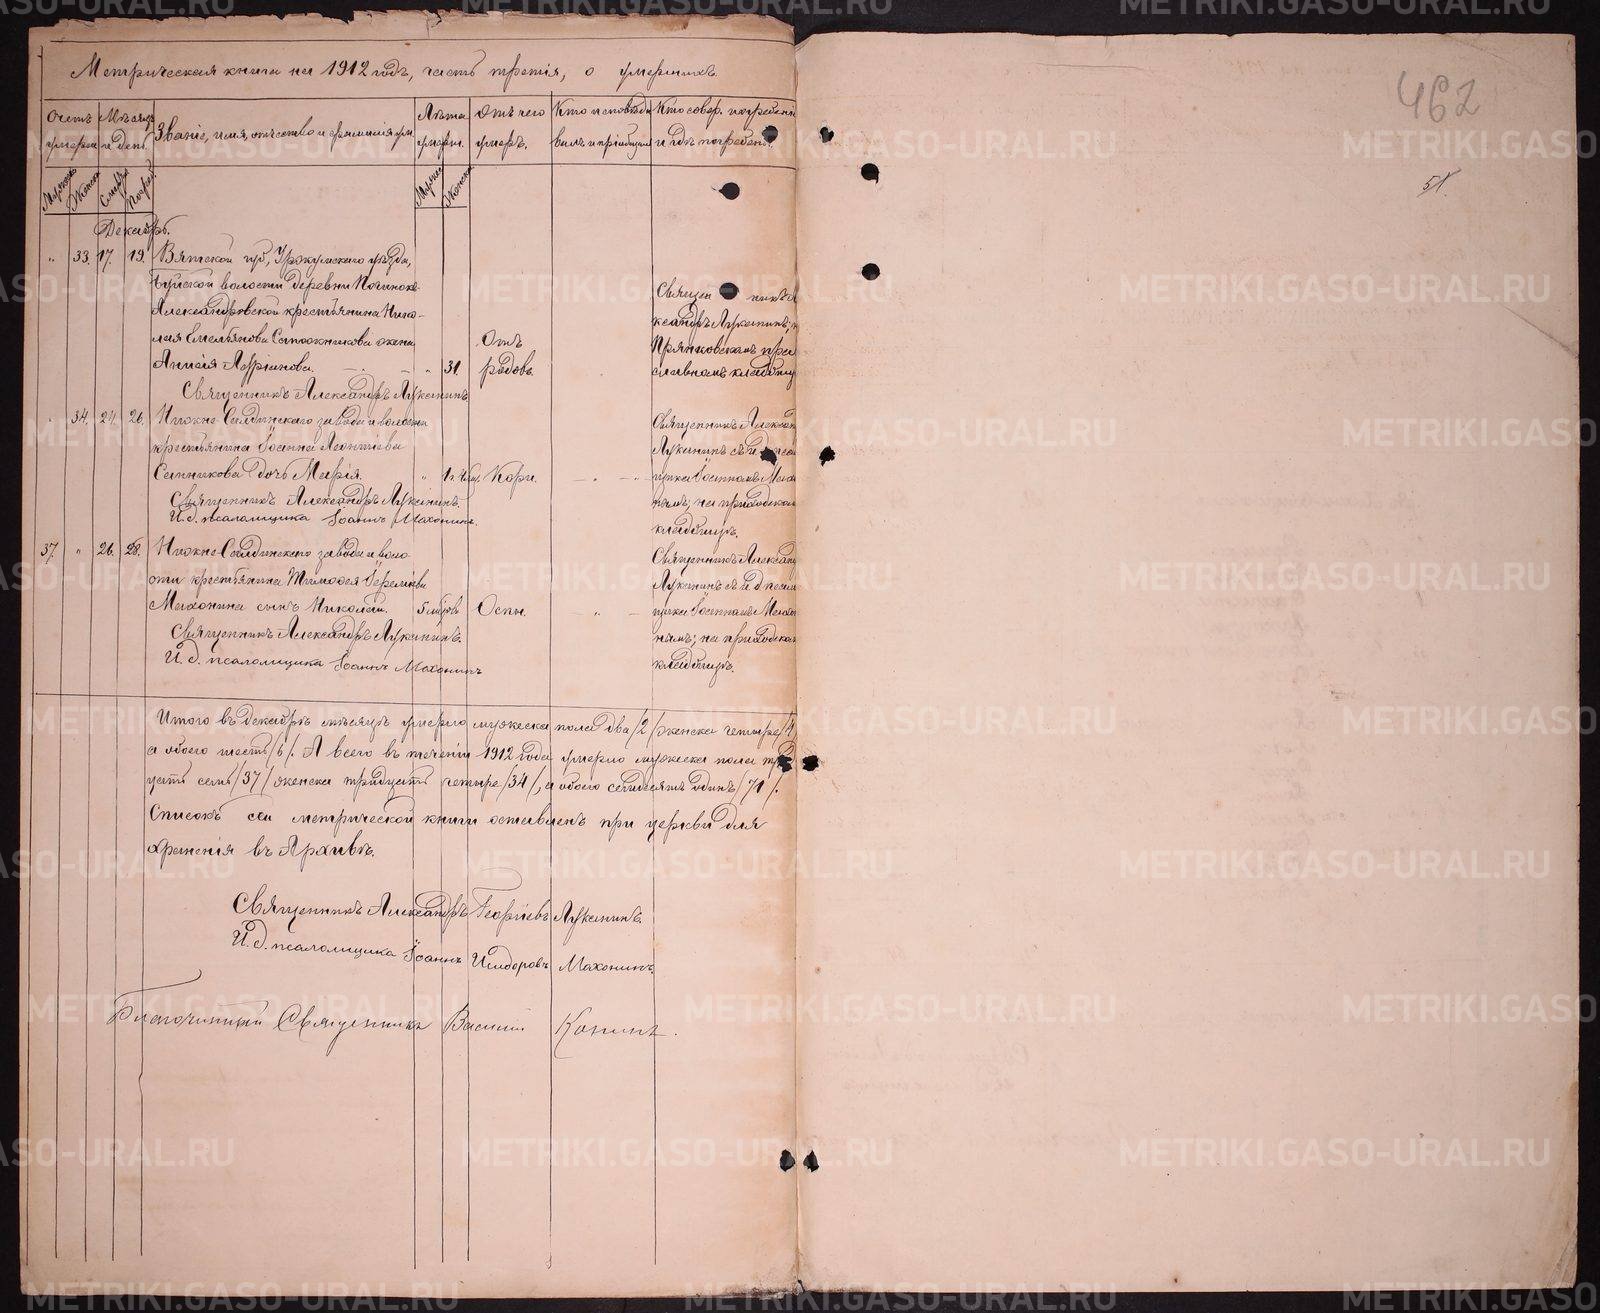 Метрическая книга на 1912 годъ, часть третія, о умершихъ
462
51.
Счетъ умерш.
Мѣсяцъ и день.
Званіе, имя, отчество и фамилія ум.
Лѣта умерш.
Отъ чего умеръ.
Кто исповѣды валъ и пріобщалъ
Кто соверш. погребеніе и гдѣ погребены.
Мужеска
Женска
Смерти
Погреб.
Мужеска
Женска
Декабрь.
" 33. 17. 19. Вятской губ, Уржумскаго уѣзда,
Буйской волости деревни Починокъ
Александровской крестьянина Нико-
лая Емельянова Сапожникова жена
Анисія Андріанова. " 31.
Отъ
родовъ.
Священникъ А
лександръ Лукинъ;
православномъ кладбищ
Священникъ Александръ Луканинъ.
" 34. 24. 26. Нижне-Салдинскаго завода и волости
крестьянина Іоанна Леонтіева
Сапникова дочь Марія. " Кори.
Священникъ Александръ Луканинъ.
И. д. псаломщика Іоаннъ Махонинъ.
Священникъ Алексан
Луканинъ съ и д псалом
щика Іоанномъ Махо
нинымъ; на приходскомъ
кладбищѣ.
37. " 26. 28. Нижне-Салдинскаго завода и воло
сти крестьянина Тимофея
Махонина сынъ Николай. 5 Оспы.
Священникъ Александръ Луканинъ.
И. д. псаломщика Іоаннъ Махонинъ
Священникъ Александ
Луканинъ съ и д псалом
щика Іоанномъ Махо
нинымъ; на приходском
кладбищѣ.
Итого въ декабрѣ мѣсяцѣ умерло мужеска пола два /2/ женска четыре /4
а обоего шесть /6/. А всего въ теченіи 1912 года умерло мужеска пола трид
цать семь /37/ женска тридцать четыре /34/, а обоего семьдесятъ одинъ /71/.
Списокъ сей метрической книги оставленъ при церкви для
храненія въ Архивѣ.
Священникъ Александръ Георгіевъ Луканинъ.
И. д. псаломщика Іоаннъ Исидоровъ Махонинъ.
Благочинный Священникъ Василій Конинъ.
METRIKI.GASO-URAL.RU